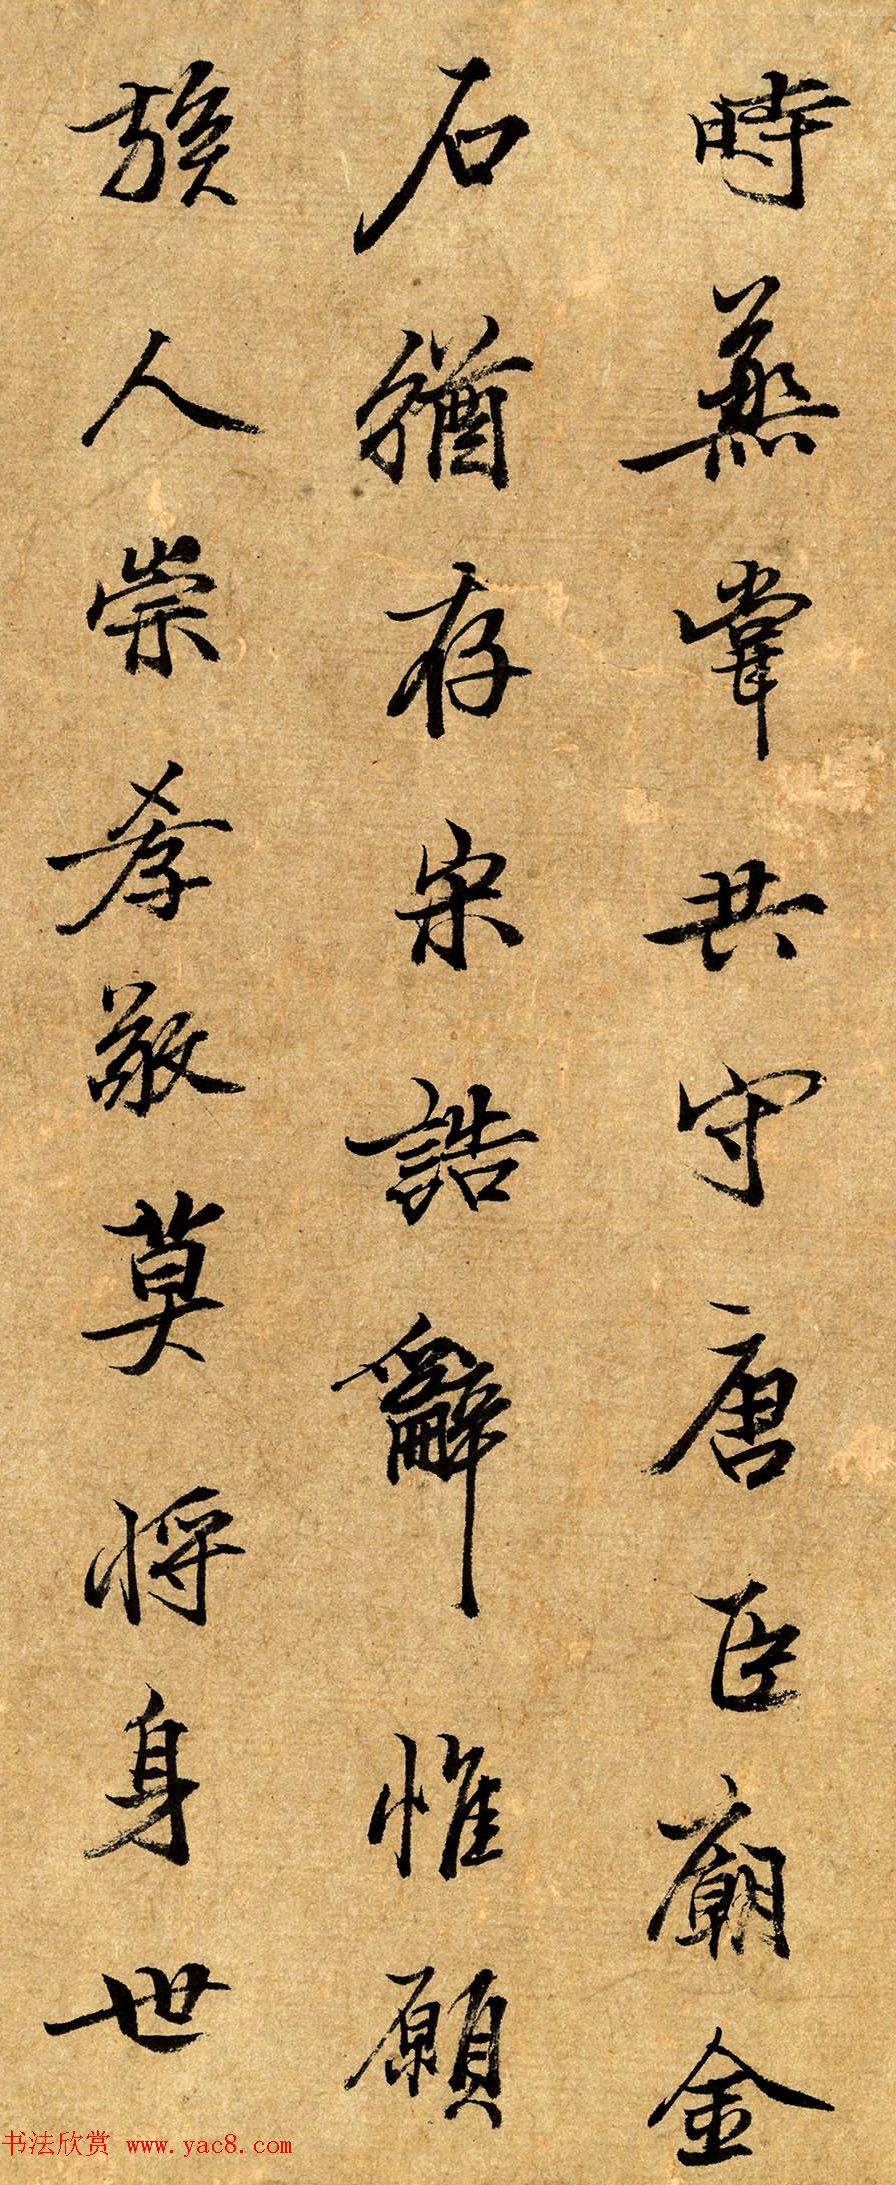 時蒸甞共守唐臣廟金
石猶存宋誥辭惟願
族人崇孝敬莫将身世
书法欣赏 www.yac8.com